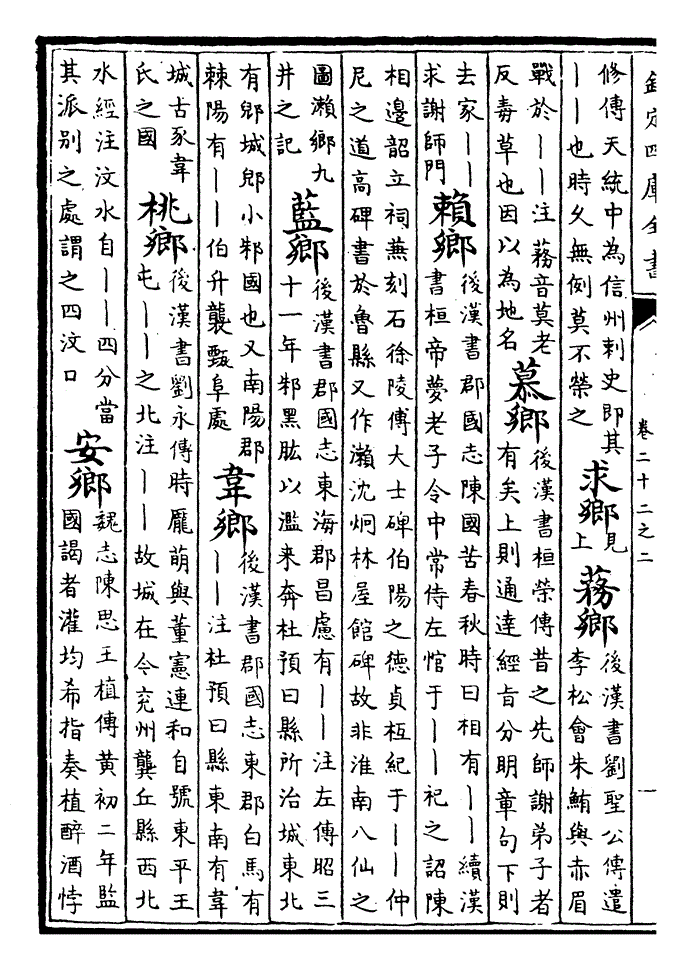 欽定四庫全書
卷二十二之二
一
修傳天統中為信州刺史即其
——也時久無例莫不榮之
求鄉
見
上
蓩鄉
後漢書劉聖公傳遣
李松會朱鮪與赤眉
戰於——注蓩音莫老
反毒草也因以為地名
慕鄉
後漢書桓榮傳昔之先師謝弟子者
有矣上則通達經旨分明章句下則
去家——
求謝師門
賴鄉
後漢書郡國志陳國苦春秋時曰相有——續漢
書桓帝夢老子令中常侍左悺于——祀之詔陳
相邊韶立祠兼刻石徐陵傅大士碑伯陽之德貞柢紀于——仲
尼之道高碑書於魯縣又作瀨沈炯林屋館碑故非淮南八仙之
圖瀨鄉九
井之記
藍鄉
後漢書郡國志東海郡昌慮有——注左傳昭三
十一年邾黑肱以濫来奔杜預曰縣所治城東北
有郳城郳小邾國也又南陽郡
棘陽有——伯升襲甄阜處
韋鄉
後漢書郡國志東郡白馬有
——注杜預曰縣東南有韋
城古豕韋
氏之國
桃鄉
後漢書劉永傳時龐萌與董憲連和自號東平王
屯——之北注——故城在今兖州龔丘縣西北
水經注汶水自——四分當
其派别之處謂之四汶口
安鄉
魏志陳思王植傳黄初二年監
國謁者灌均希指奏植醉酒悖